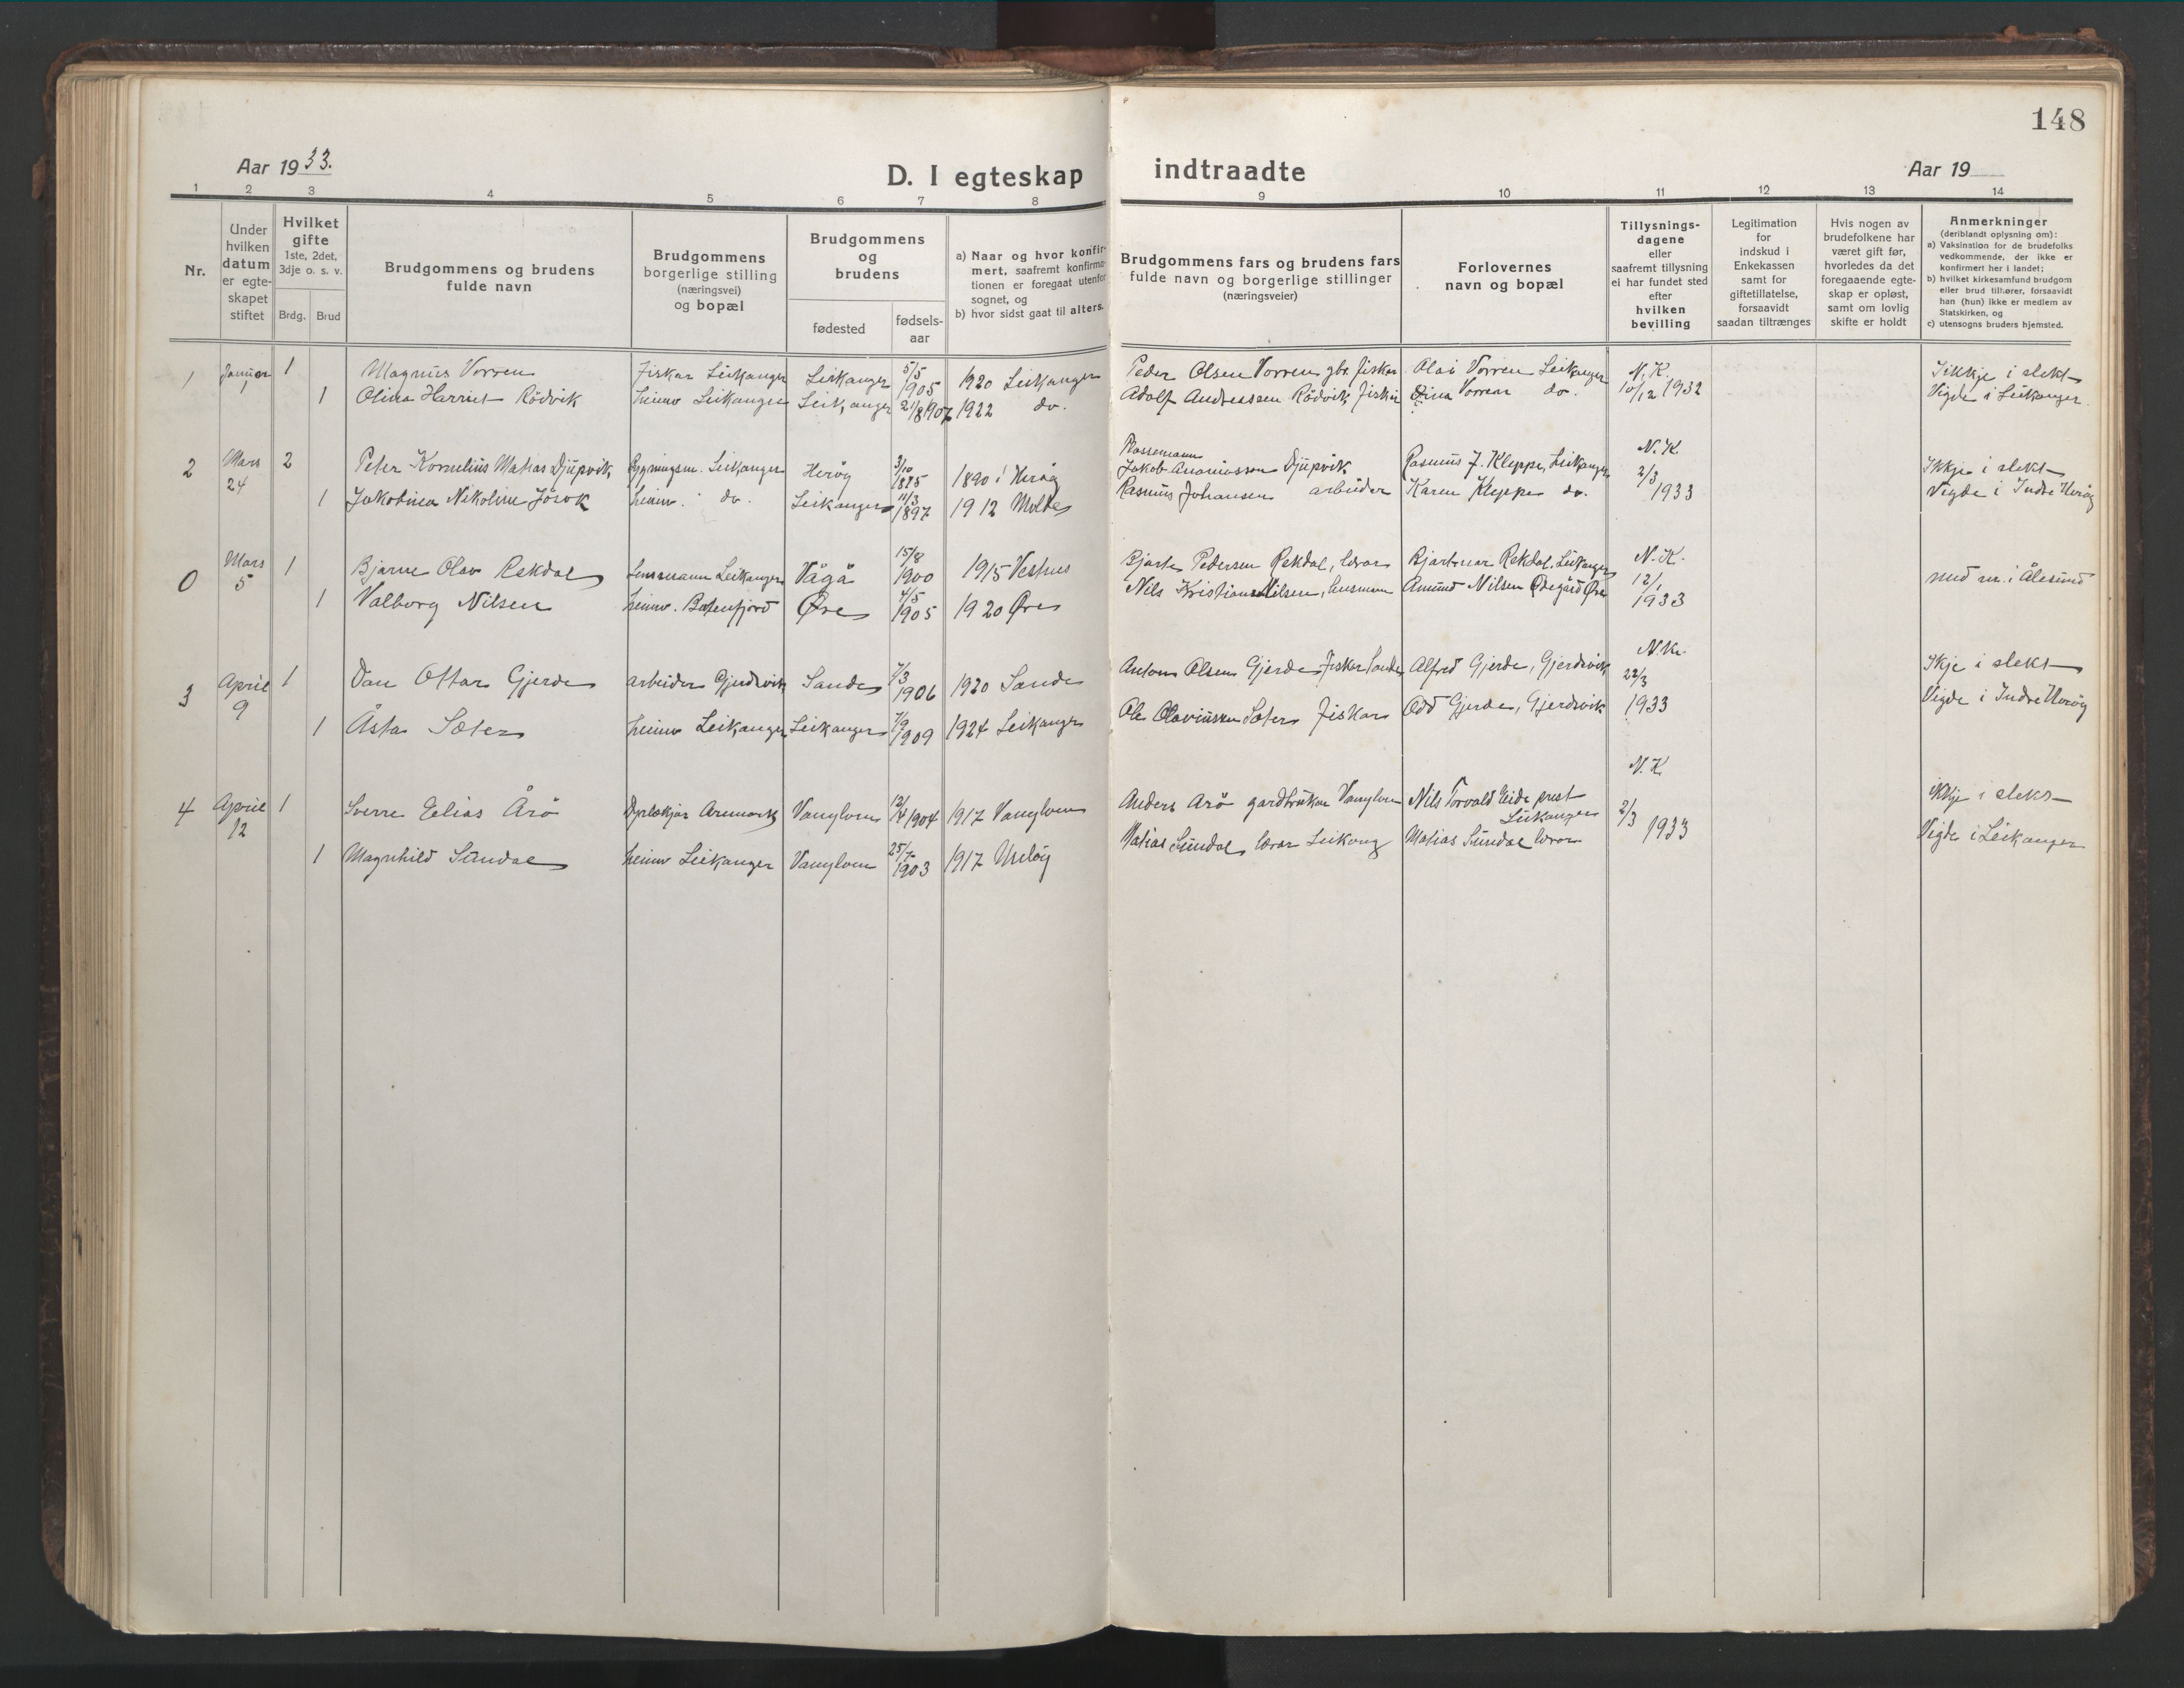 148
Aar 1933.
D. I egteskap indtraadte
Aar 19
1 2 3 4 5 6 7 8 9 10 11 12 13 14
Nr.
Under hvilken datum er egteskapet stiftet
Hvilket gifte 1ste, 2det, 3dje o. s. v.
Brdg. Brud
Brudgommens og brudens fulde navn
Brudgommens borgerlige stilling (næringsvei) og bopæl
Brudgommens og brudens
fødested
fødsels-aar
a) Naar og hvor konfir-
mert, saafremt konfirma-
tionen er foregaat utenfor
sognet, og
b) hvor sidst gaat til alters.
Brudgommens fars og brudens fars
fulde navn og borgerlige stillinger
(næringsveier)
Forlovernes
navn og bopæl
Tillysnings-
dagene
eller
saafremt tillysning
ei har fundet sted
efter
hvilken
bevilling
Legitimation
for
indskud i
Enkekassen
samt for
giftetillatelse,
forsaavidt
saadan tiltrænges
Hvis nogen av
brudefolkene har
været gift før,
hvorledes da det
foregaaende egte-
skap er opløst,
samt om lovlig
skifte er holdt
Anmerkninger
(deriblandt oplysning om):
a) Vaksination for de brudefolks
vedkommende, der ikke er
konfirmert her i landet;
b) hvilket kirkesamfund brudgom
eller brud tilhører, forsaavidt
han (hun) ikke er medlem av
Statskirken, og
c) utensogns bruders hjemsted.
1 Januar 1 1 Magnus Vorren Fiskar Leikanger Leikanger 5/5 1905 1920 Leikanger Peder Olsen Vorren gbr. fiskar Olai Vorren Leikanger N.K. 10/12 1932 Ikkje i slekt
1 Olina Harriet Rödvik heimv Leikanger Leikanger 21/8 1907 1922 do. Adolf Andreassen Rödvik fiskar Vorren do. Vigde i Leikanger.
2 Mars 24 2 Peter Kornelius Matias Djupvik Bygningsm. Leikanger Heröy 3/10 1875 1890 i Heröy Jakob Ananiassen Djupvik Rasmus J. Kleppe, Leikanger N.K. 2/3 1933 Ikkje i slekt
1 Jakobina Nikoline Jösok heimv. do. Leikanger 11/3 1897 1912 Molde Rasmus Johansen arbeider Karen Kleppe do. Vigde i Indre Heröy
0 Mars 5 1 Bjarne Olav Rekdal Lensmann Leikanger Vågå 15/8 1900 1915 Vestnes Bjarte Pedersen Rekdal, lærar Rekdal, Leikanger N.K. 12/1 1933
1 Valborg Nilsen heimv. Batenfjord Øre 4/5 1905 1920 Øre Nils Kristian Nilsen, husmann Amund Nilsen Ødegård Øre i Ålesund
3 April 9 1 Dan Ottar Gjerde arbeider Gjerdsvik Sande 7/3 1906 1920 Sande Anton Olsen Gjerde, fiskar Sande Alfred Gjerde, Gjerdsvik N.K. 22/3 1933 Ikje i slekt
1 Åsta Sæter heimv Leikanger Leikanger 7/9 1909 1924 Leikanger Ole Olaviussen Sæter fiskar Odd Gjerde, Gjerdsvik Vigde i Indre Heröy
4 April 12 1 Sverre Elias Årö Dyrlækjar Aremark Vanylven 12/4 1904 1917 Vanylven Anders Årö gardbrukar Vanylven Nils Torvald Eide prest Leikanger N.K. 2/3 1933 ikkje i slekt
1 Magnhild Sundal heimv Leikanger Vanylven 25/7 1903 1917 Matias Sundal lærar Leikang Matias Sundal lærar Vigde i Leikanger